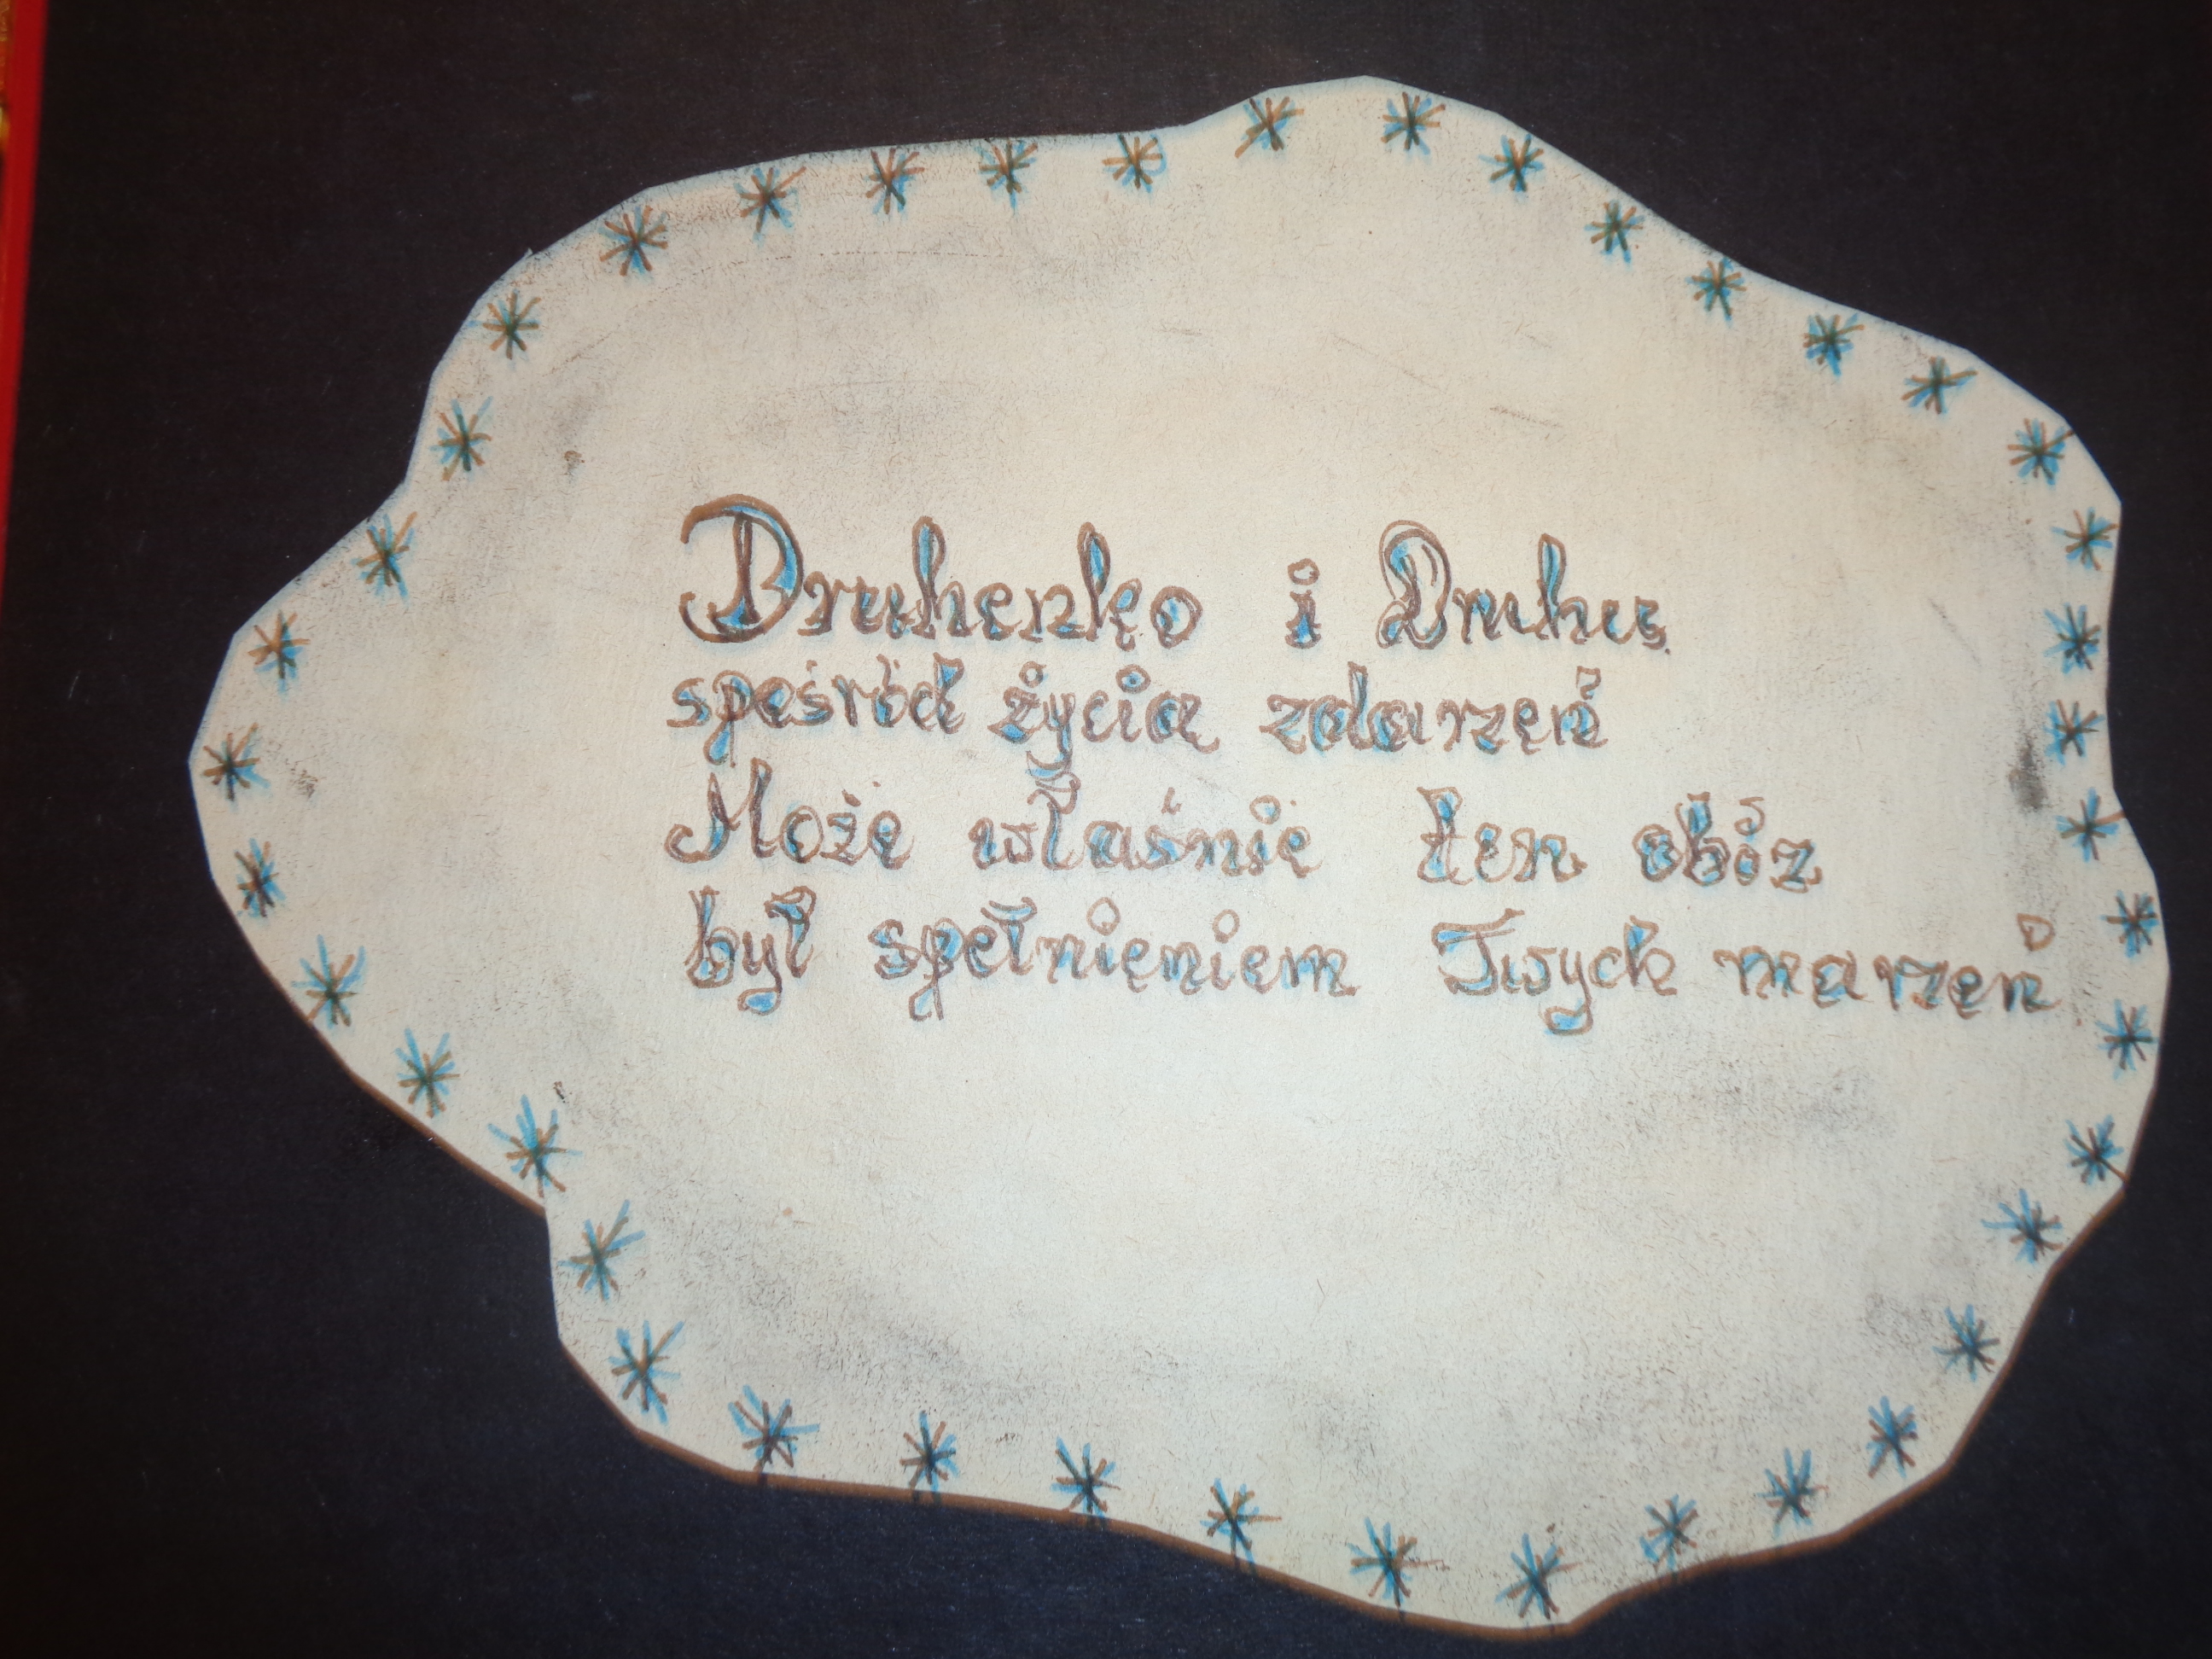 Druhenko i Druhu
spośród życia zdarzeń
Może właśnie ten obóz
był spełnieniem Twych marzeń